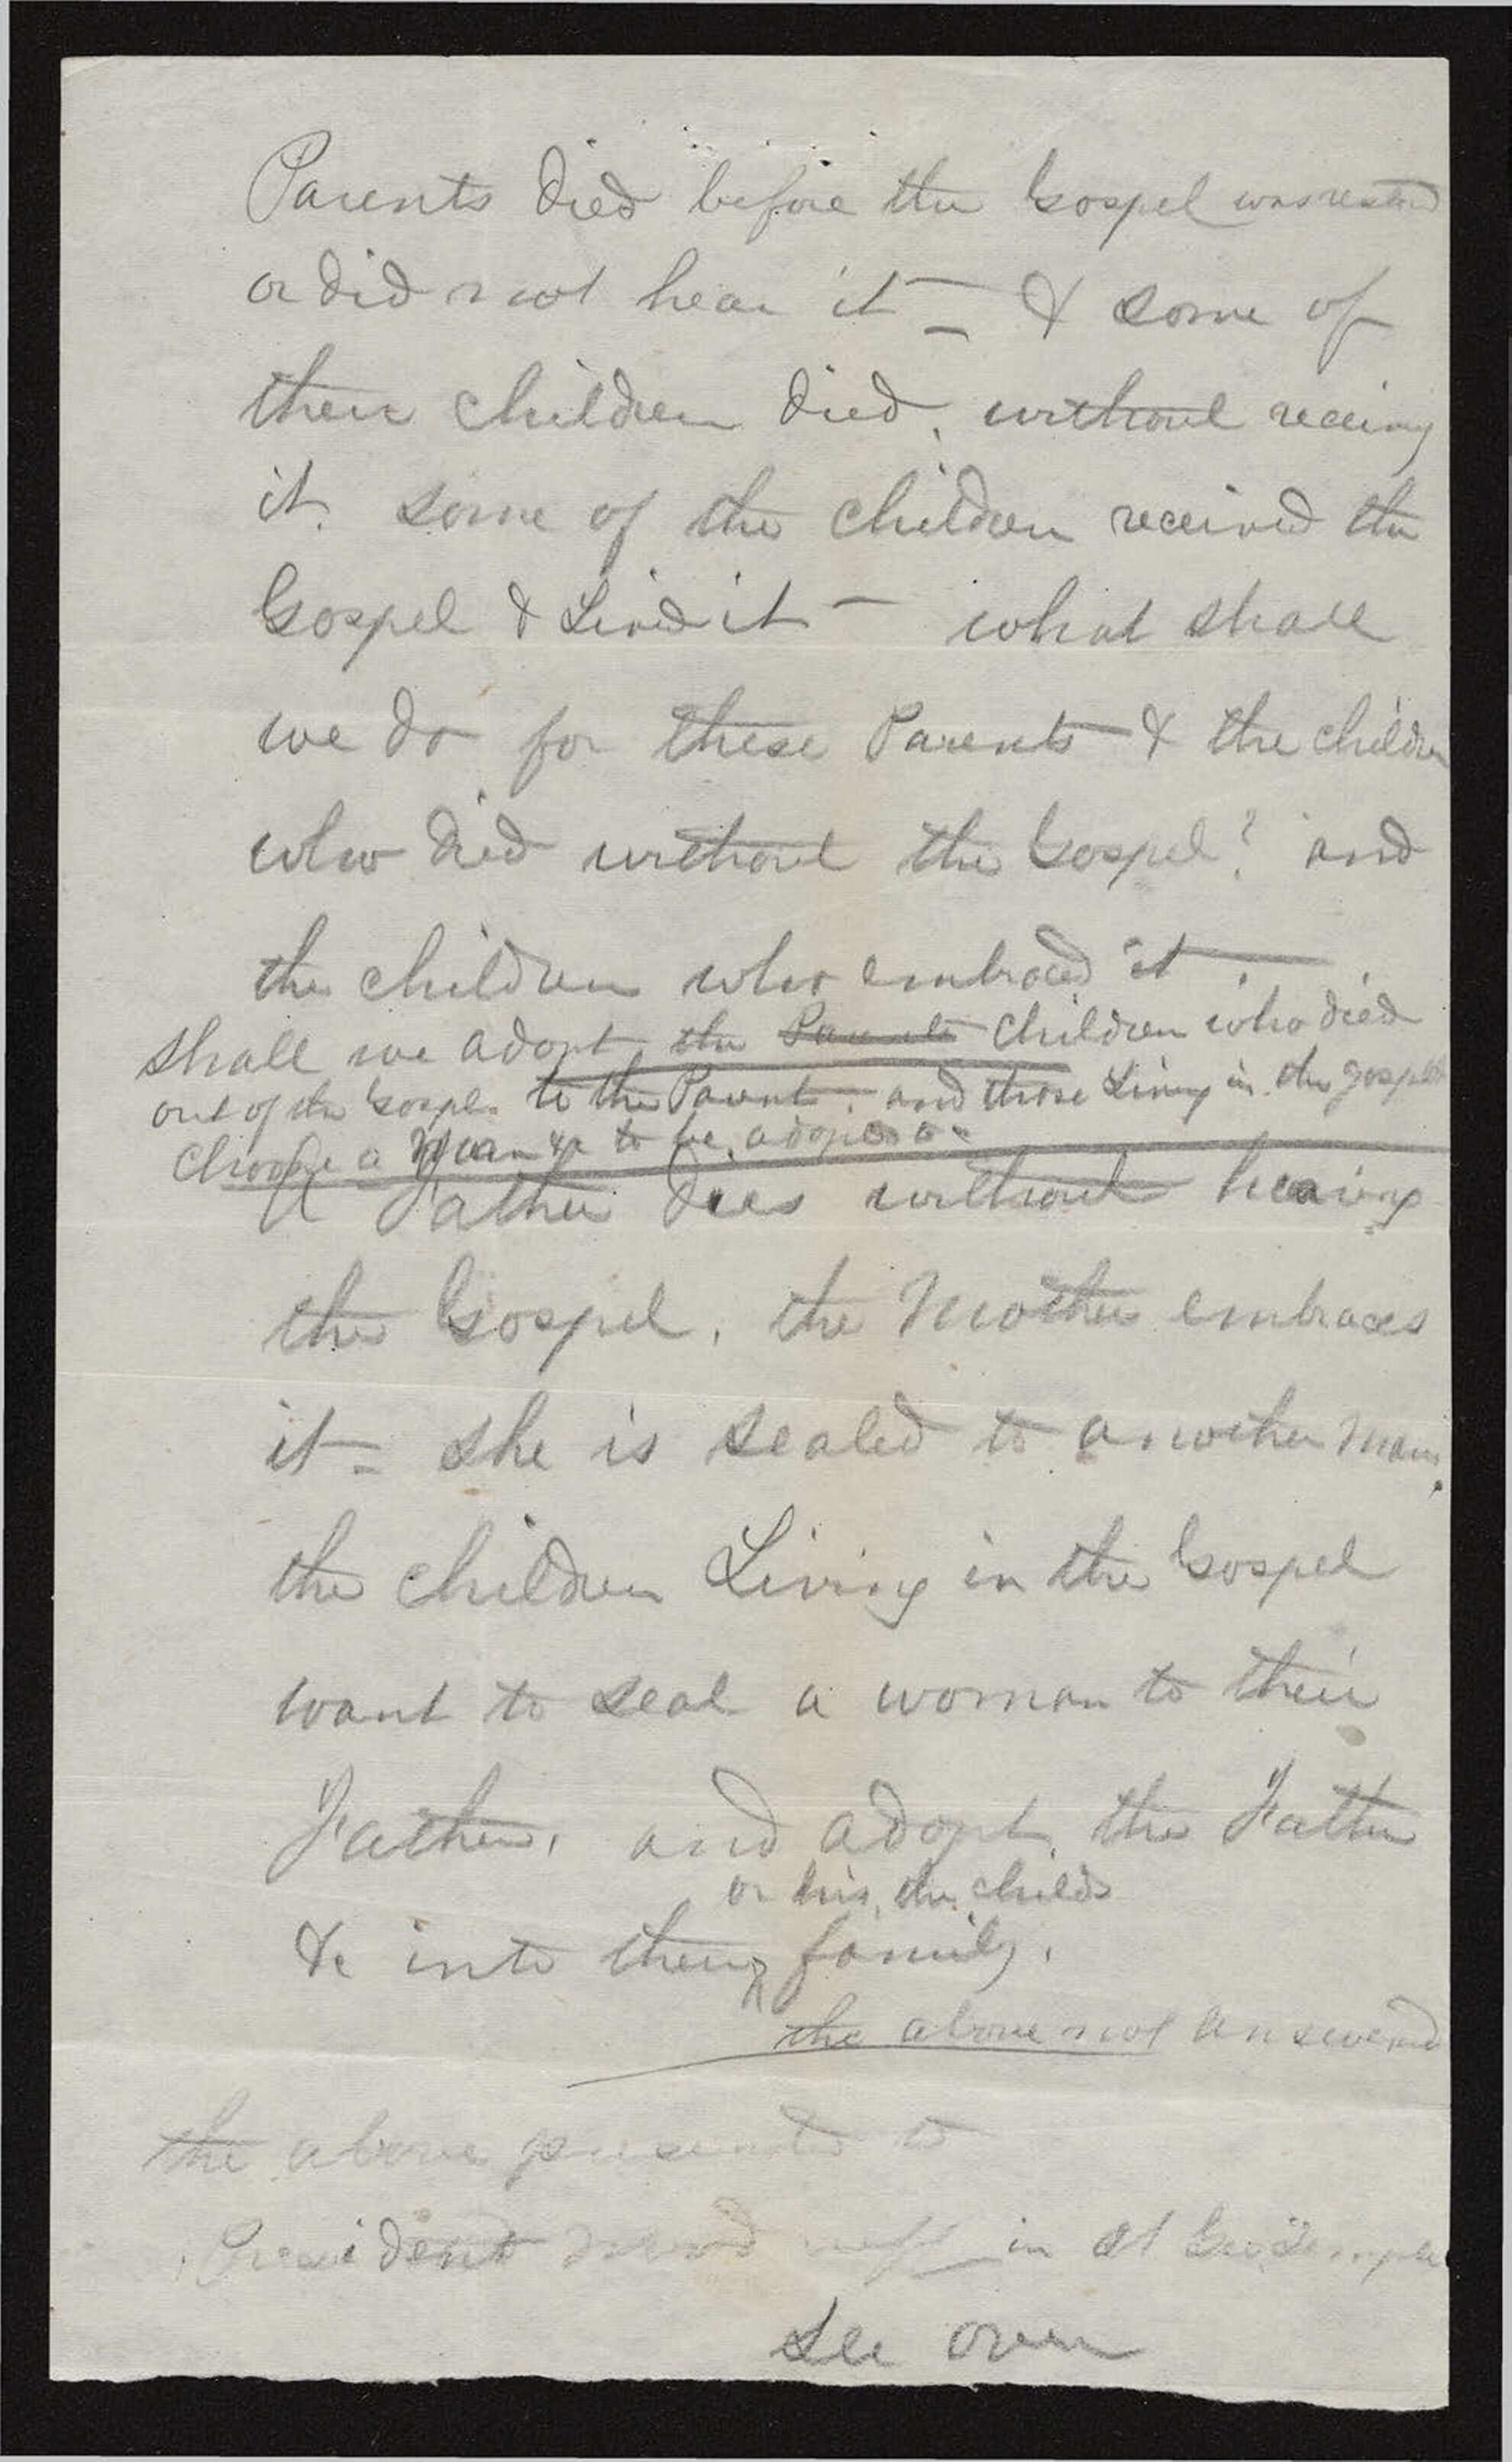 Parents died before the Gospel was restord
or did not hear it — & some of
their children died, without receivig
it. some of the children received the
Gospel & Lived it — what shall
we do for these Parents & the childrn
who died without the Gospel? and
the children who embraced it —
shall we adopt the Parents children who died
out of the Gospel. to the Parents. and those Living in the gospel
Choose a Man &c to be adopted to
A Father dies without hearing
the Gospel, the Mother embraces
it — she is sealed to another man.
the children Living in the Gospel
want to seal a woman to their
Father, and adopt the Father
or his, the childs
&c into their family.
the above not answered
the above presented to
President in St Geo Temple
See over